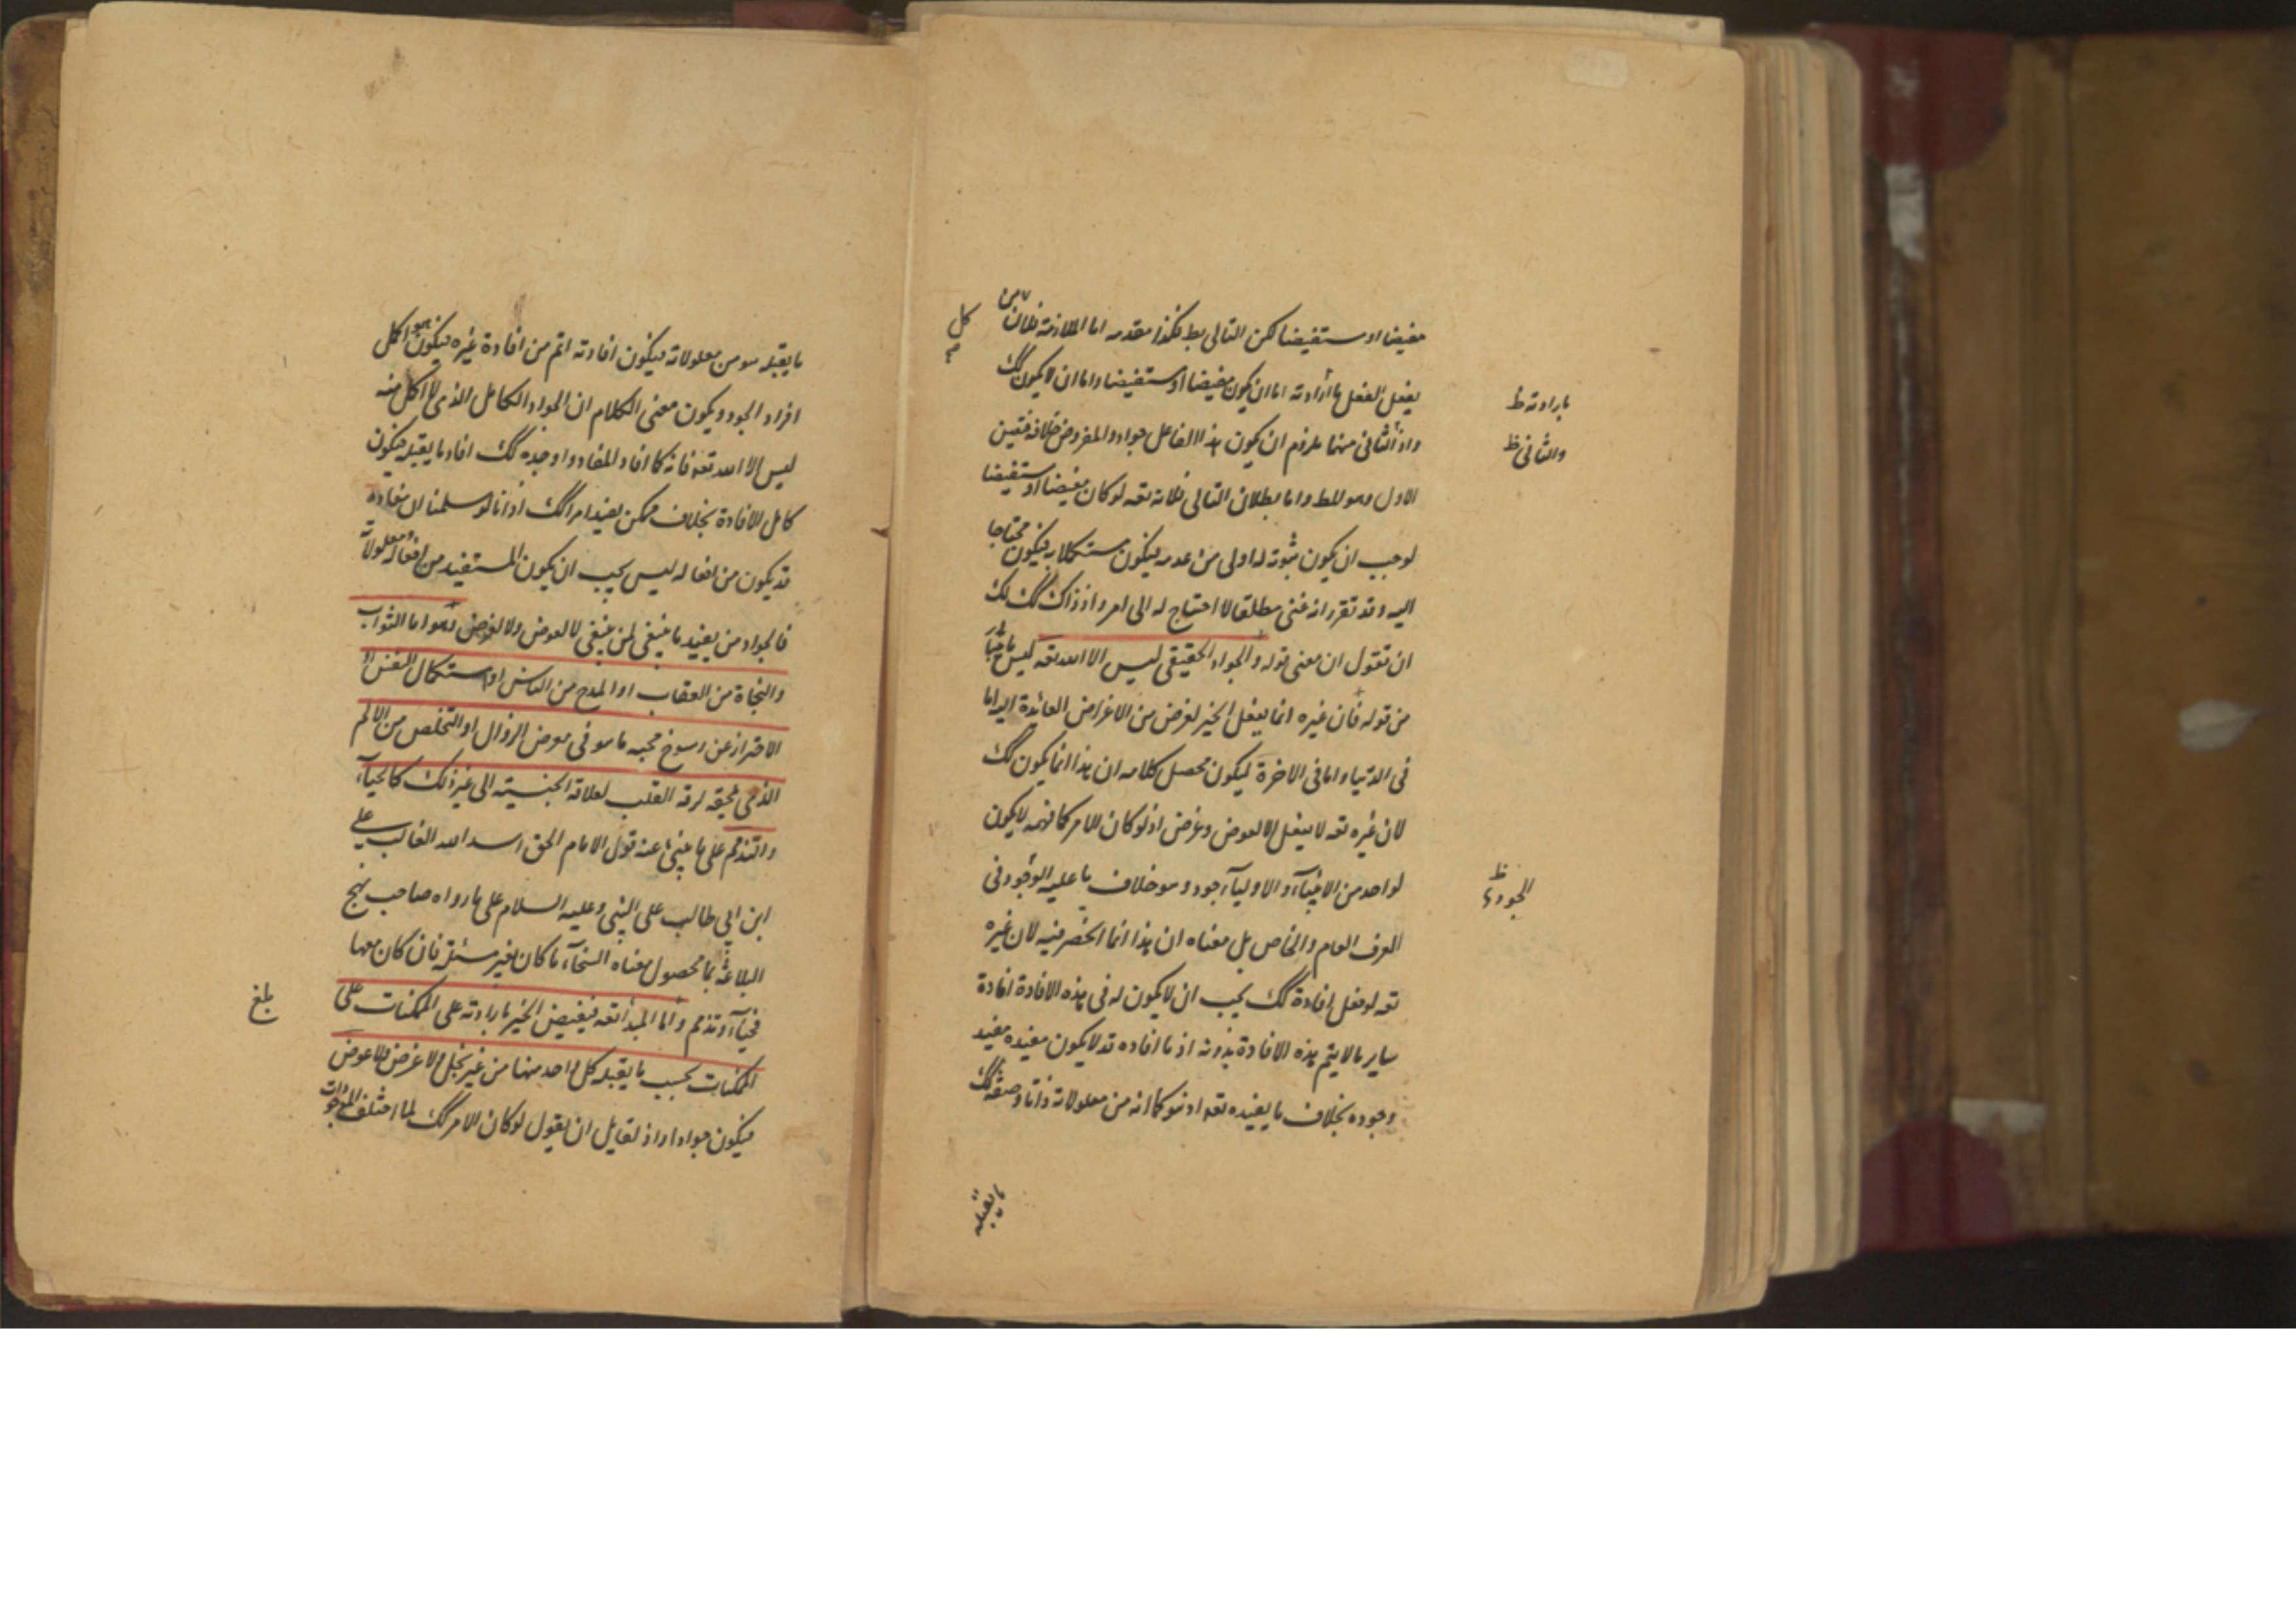 مفيضا او مستفيضا لكن التالى بط فكذا مقدمه اما الملازمة فلان من
كل
يفعل الفعل بارادته اما ان يكون مفيضا او مستفيضا واما ان لا يكون كك
بارادته ظ
واذ الثانى منهما ملزوم ان يكون هذا الفاعل جوادا والمفروض خلافه فتعين
والثانى ظ
الاول وهو المط واما بطلان التالى فلانه تعه لو كان مفيضا او مستفيضا
لوجب ان يكون ثبوته له اولى من عدمه فيكون مستكملا به فيكون محتاجا
اليه وقد تقرر انه غنى مطلقا لا احتياج له الى امر واذ ذاك كك لك
ان تقول ان معنى قوله والجواد الحقيقى ليس الا الله تعه ليس
من قوله فان غيره انما يفعل الخير لغرض من الاغراض العائدة اليه اما
فى الدنيا واما فى الاخرة ليكون محصل كلامه ان هذا انما يكون كك
لان غيره تعه لا يفعل الا لعوض وغرض اذ لو كان الامر كما فهمه لا يكون
لواحد من الانبياء والاولياء جود وهو خلاف ما عليه الوجود فى
الجود ظ
العرف العام والخاص بل معناه ان هذا انما انحصر فيه لان غيره
تعه لو فعل افادة كك يجب ان لا يكون له فى هذه الافادة افادة
ساير ما لا يتم هذه الافادة بدونه اذ ما افاده قد لا يكون مفيده مفيد
وجوده بخلاف ما يفيده تعه اذ هو كما انه من معلولاته ذاتا وصفة كك
ما يقبله
ما يقبله هو من معلولاته فيكون افادته اتم من افادة غيره فيكون هو اكمل
افراد الجود ويكون معنى الكلام ان الجواد الكامل الذى لا اكمل منه
ليس الا الله تعه فانه كما افاد المفاد واوجده كك افاد ما يقبله فيكون
كامل الافادة بخلاف ممكن يفيد امرا كك اذ انا لو سلمنا ان مفاده
قد يكون من افعاله ليس يجب ان يكون المستفيد من افعاله ومعلولاته
فالجواد من يفيد ما ينبغى لمن ينبغى لا لعوض ولا لغرض وهو اما الثواب
والنجاة من العقاب او المدح من الناس او استكمال النفس او
الاحتراز عن رسوخ محبه ما هو فى معرض الزوال او التخلص من الالم
الذى يلحقه لرقة القلب لعلاقة الجنسية الى غير ذلك كالحياء
والتذمم على ما ينبئ عنه قول الامام الحق اسد الله الغالب على
ابن ابى طالب على النبى وعليه السلام على ما رواه صاحب نهج
البلاغة بما محصول معناه السخاء ما كان بغير مسئلة فان كان معها
فحياء وتذمم واما المبدأ تعه فيفيض الخير بارادته على الممكنات على
بلغ
الممكنات بحسب ما يقبله كل واحد منها من غير بخل ولا غرض ولا عوض
فيكون جوادا واذ لقايل ان يقول لو كان الامر كك لما اختلف الموجودات